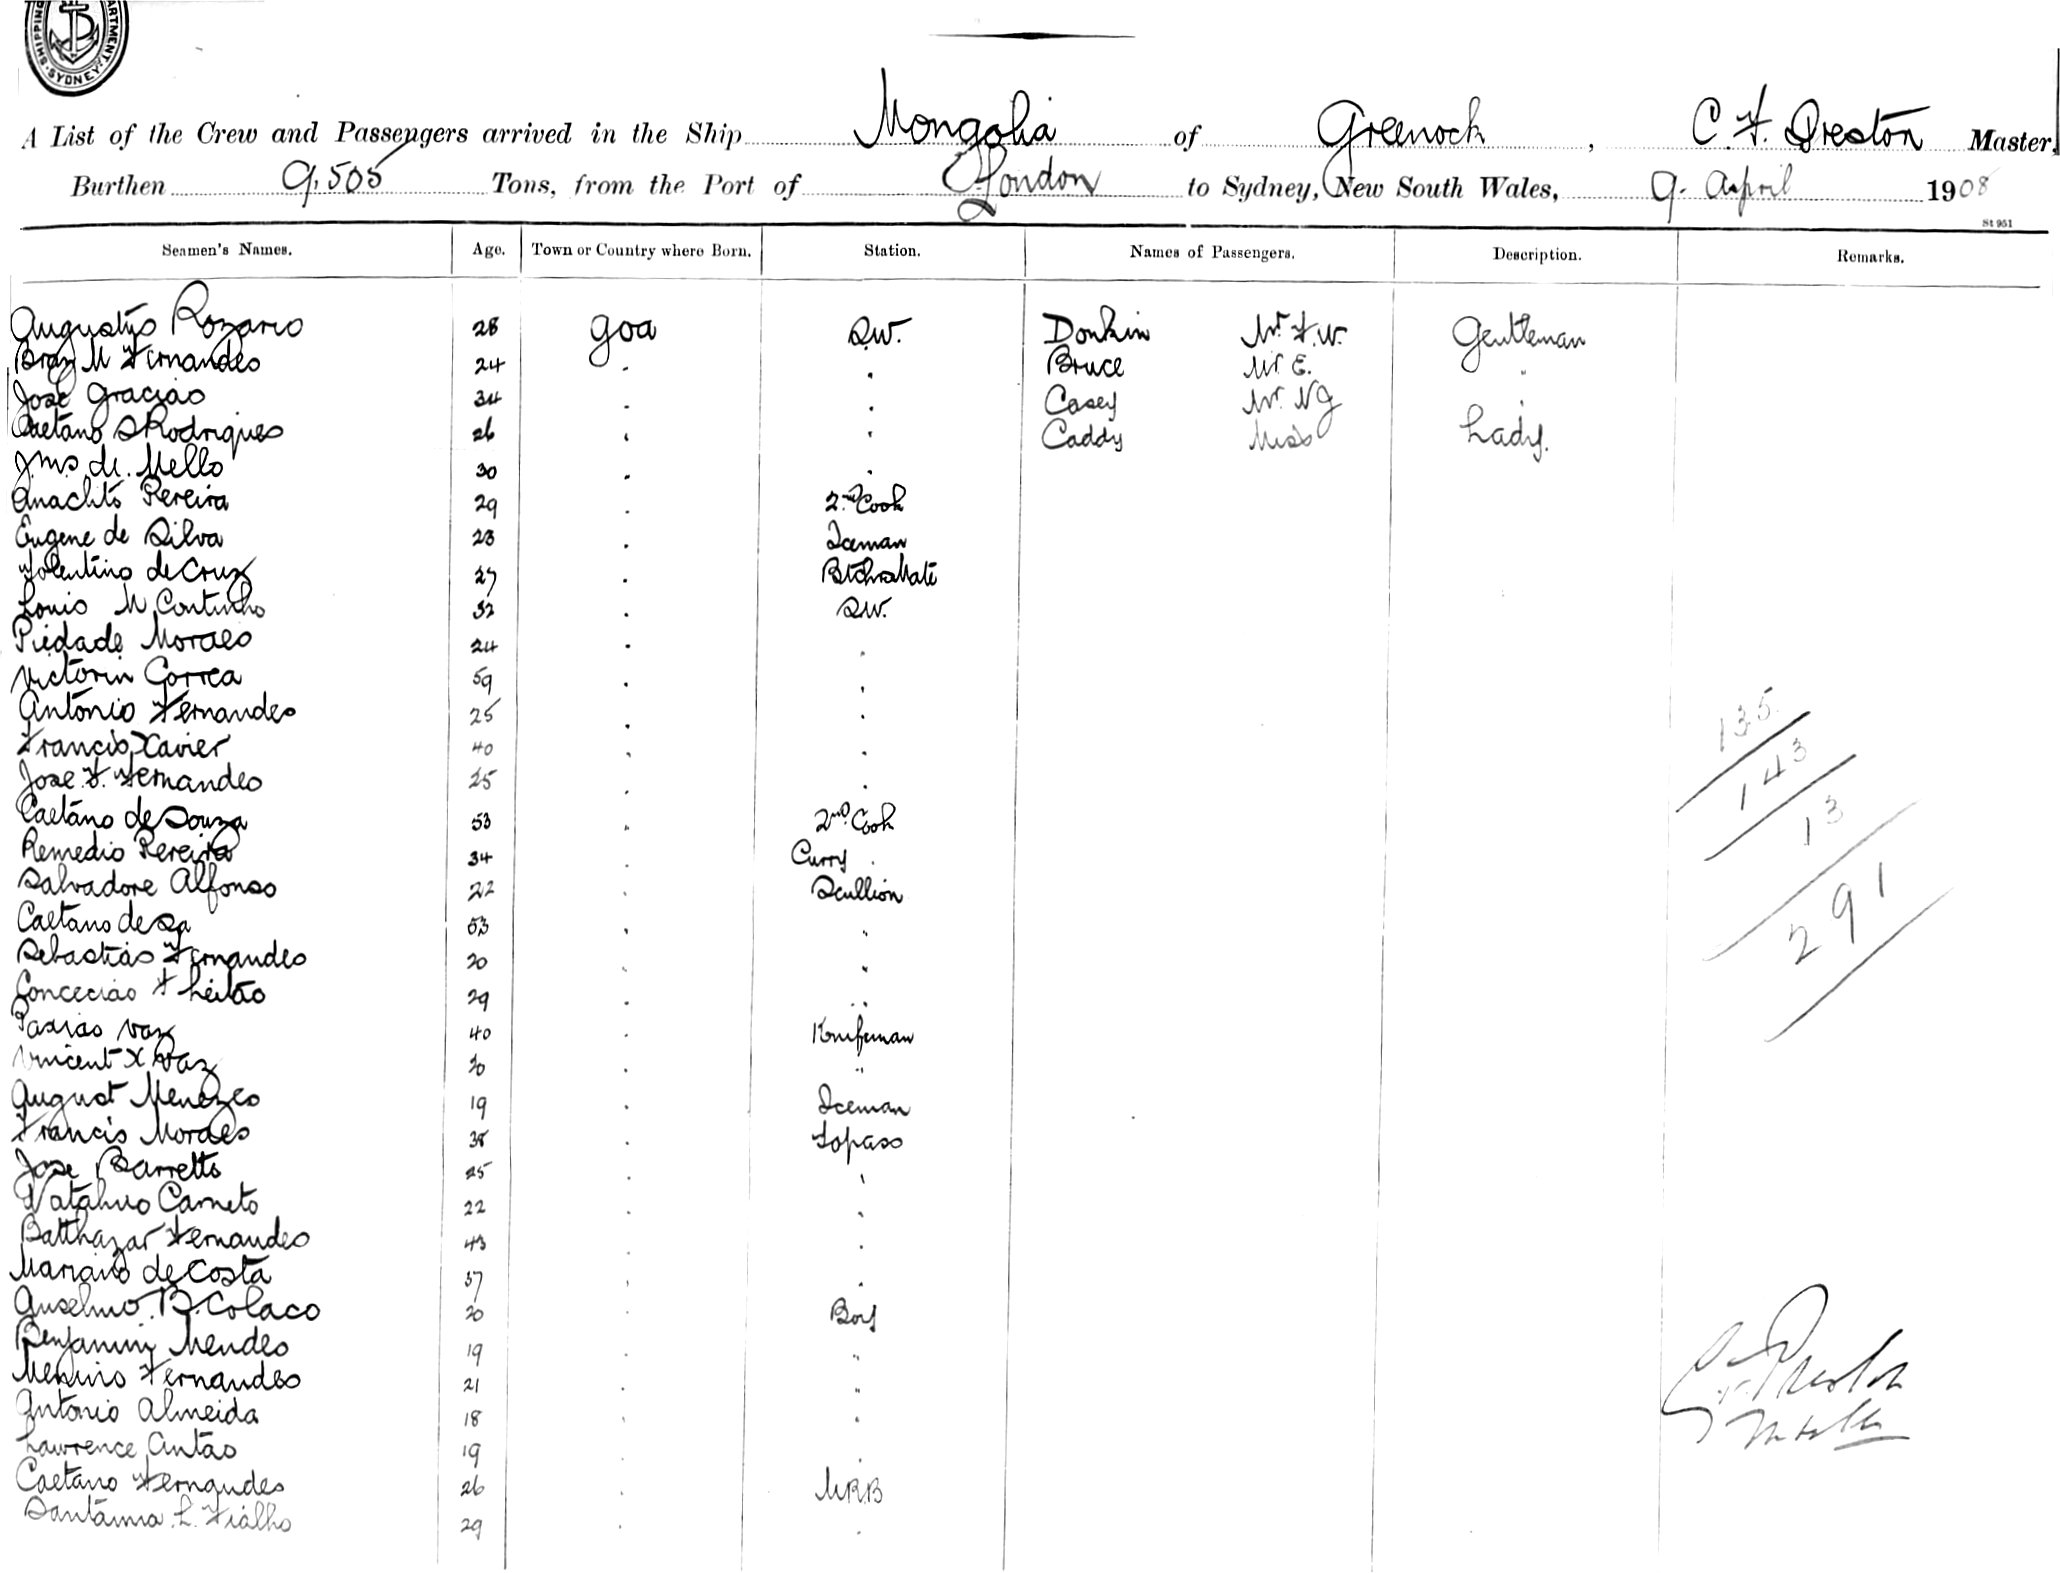 SHIPPING DEPARTMENT SYDNEY
A List of the Crew and Passengers arrived in the Ship Mongolia of Greenock, C. F. Preston Master,
Burthen 9,505 Tons, from the Port of London to Sydney, New South Wales, 9. April 1908
St 951
Seamen's Names. Age. Town or Country where Born. Station. Names of Passengers. Description. Remarks.
Augustus Rozario 28 Goa S.W. Donkin Mr. F. W. Gentleman
Braz M Fernandes 24 . . Bruce Mr. E. "
José Graciao 34 . . Casey Mr. N G "
Caetano S Rodrigues 26 . . Caddy Miss Lady.
de Mello 30 . .
Anaclito Pereira 29 . 2nd Cook
Eugene de Silva 23 . Iceman
Tolentino de Cruz 27 . BtchrsMate
Louis M Coutinho 32 . S.W.
Piedade Moraes 24 . .
Victorin Correa 59 . .
Antonio Fernandes 25 . .
Francis Xavier 40 . .
Jose F. Fernandes 25 . .
Caetano de Souza 53 . 2nd Cook
Remedio Pereira 34 . Curry .
Salvadore Alfonso 22 . Scullion
Caetano de Sa 53 . "
Sebastiao Fernandes 20 . "
Conceciao F Leitao 29 . "
Paxiao Vaz 40 . Knifeman
Vincent X Vaz 30 . "
August Menezes 19 . Iceman
Francis Moraes 38 . Topass
Jose Barretto 25 . .
Natahno Carneto 22 . .
Balthazar Fernandes 43 . .
Mariano de Costa 37 . .
Anselmo B. Colaco 20 . Boy
Benjamin Mendes 19 . "
Fernandes 21 . "
Antonio Almeida 18 . .
Lawrence Antao 19 . .
Caetano Fernandes 26 . M.R.B
Santanna L. Fialho 29 . .
135
143
13
291
C. F. Preston
Master